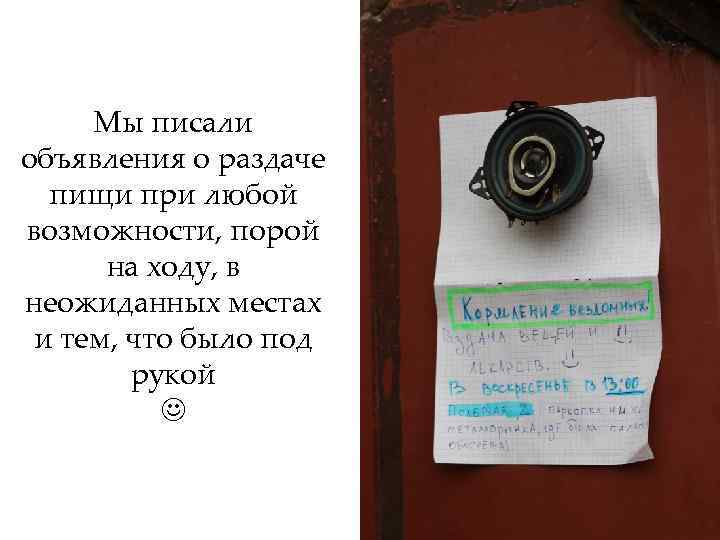 Мы писали
объявления о раздаче
пищи при любой
возможности, порой
на ходу, в
неожиданных местах
и тем, что было под
рукой
☺
Кормление бездомных!
раздача вещей и
лекарств.
В воскресенье в 13:00
парковка
где была палатка
обогрева)